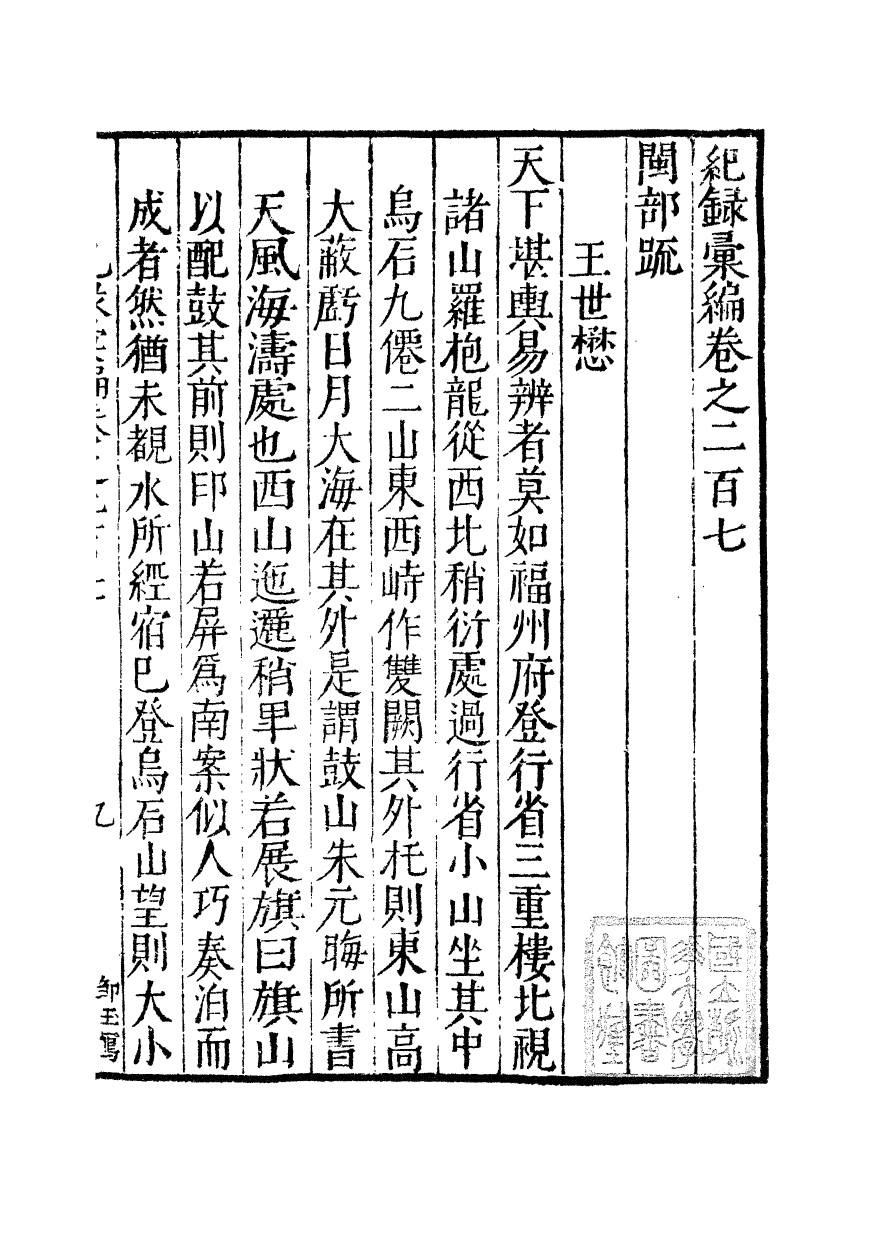 紀録彙編卷之二百七
閩部䟽
王世懋
天下堪輿易辨者莫如福州府登行省三重樓北視
諸山羅抱龍從西北稍衍處過行省小山坐其中
烏石九僊二山東西峙作雙闕其外托則東山高
大蔽虧日月大海在其外是謂鼓山朱元晦所書
天風海濤處也西山迤邐稍卑狀若展旗曰旗山
以配鼓其前則印山若屏爲南案似人巧奏泊而
成者然猶未覩水所經宿已登烏石山望則大小
鄒玉寫